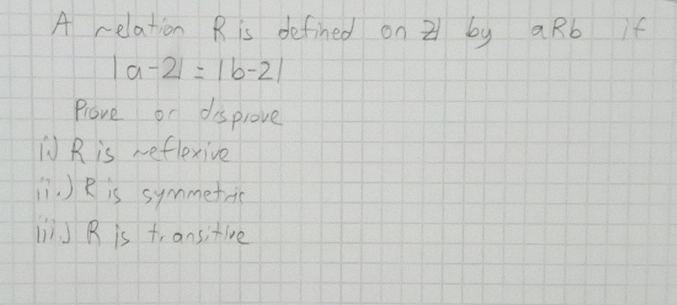 A relation R is defined on ℤ by aRb if
|a-2| = |b-2|
Prove or disprove
i.) R is reflexive
ii.) R is symmetric
iii.) R is transitive